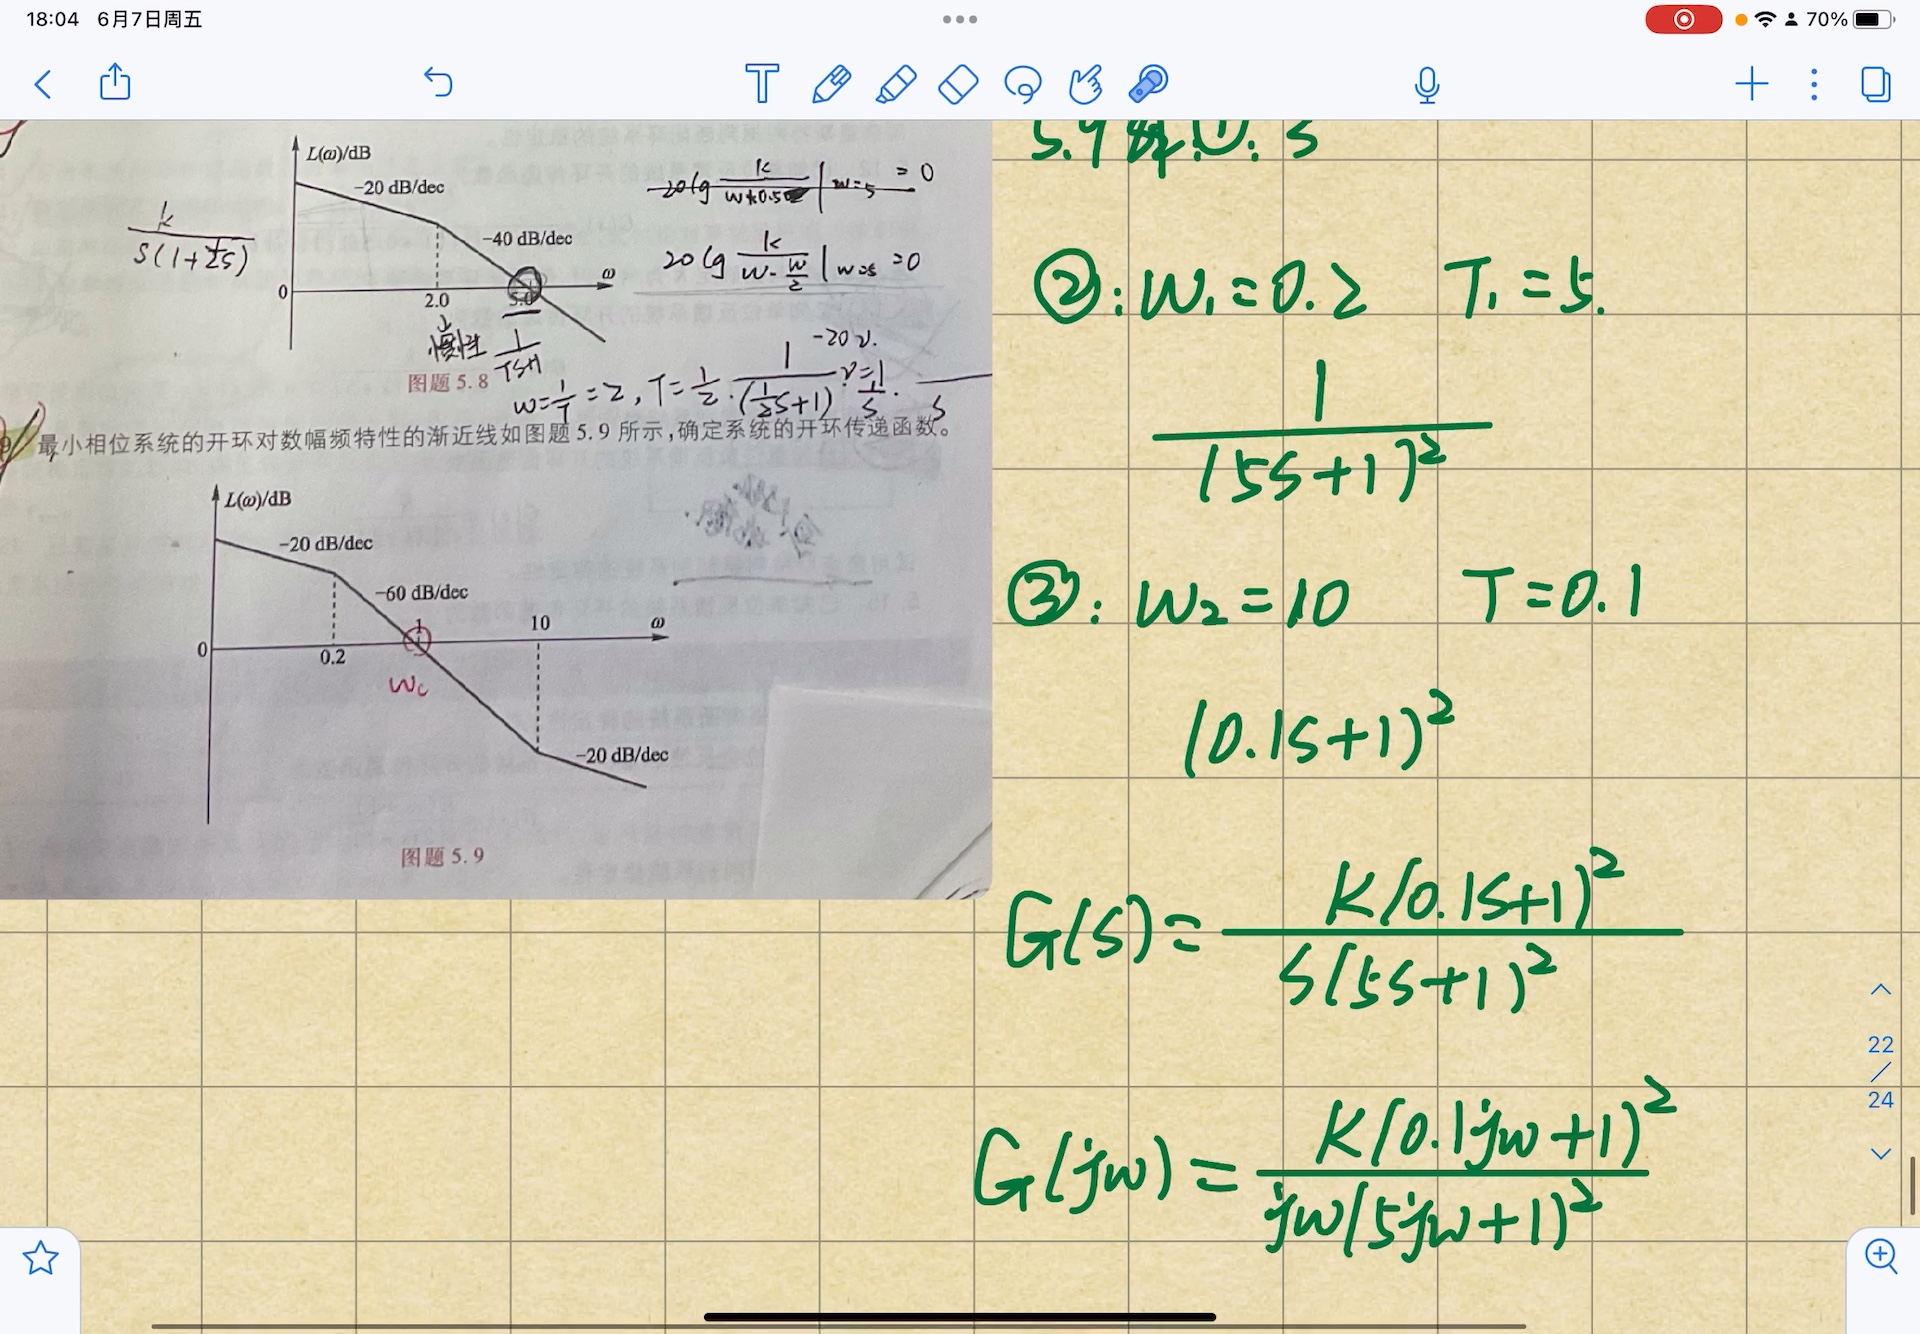 18:04 6月7日周五
70%
L(ω)/dB
-20 dB/dec
-40 dB/dec
ω
0
2.0
5.0
k
S(1+½S)
20lg k | w=5 = 0
20lg k / w·w/2 | w=5 =0
惯性 1/TS+1
图题 5.8
w=1/T=2, T=1/2. 1/(½S+1)
-20ν.
ν=1
1/S.
最小相位系统的开环对数幅频特性的渐近线如图题 5.9 所示,确定系统的开环传递函数。
L(ω)/dB
-20 dB/dec
-60 dB/dec
1
10
ω
0
0.2
Wc
-20 dB/dec
图题 5.9
5.9 解
②: W₁=0.2 T₁=5.
1
(5S+1)²
③: W₂=10 T=0.1
(0.1S+1)²
G(S)= K(0.1S+1)²
S(5S+1)²
G(jw)= K(0.1jw+1)²
jw(5jw+1)²
22
/
24